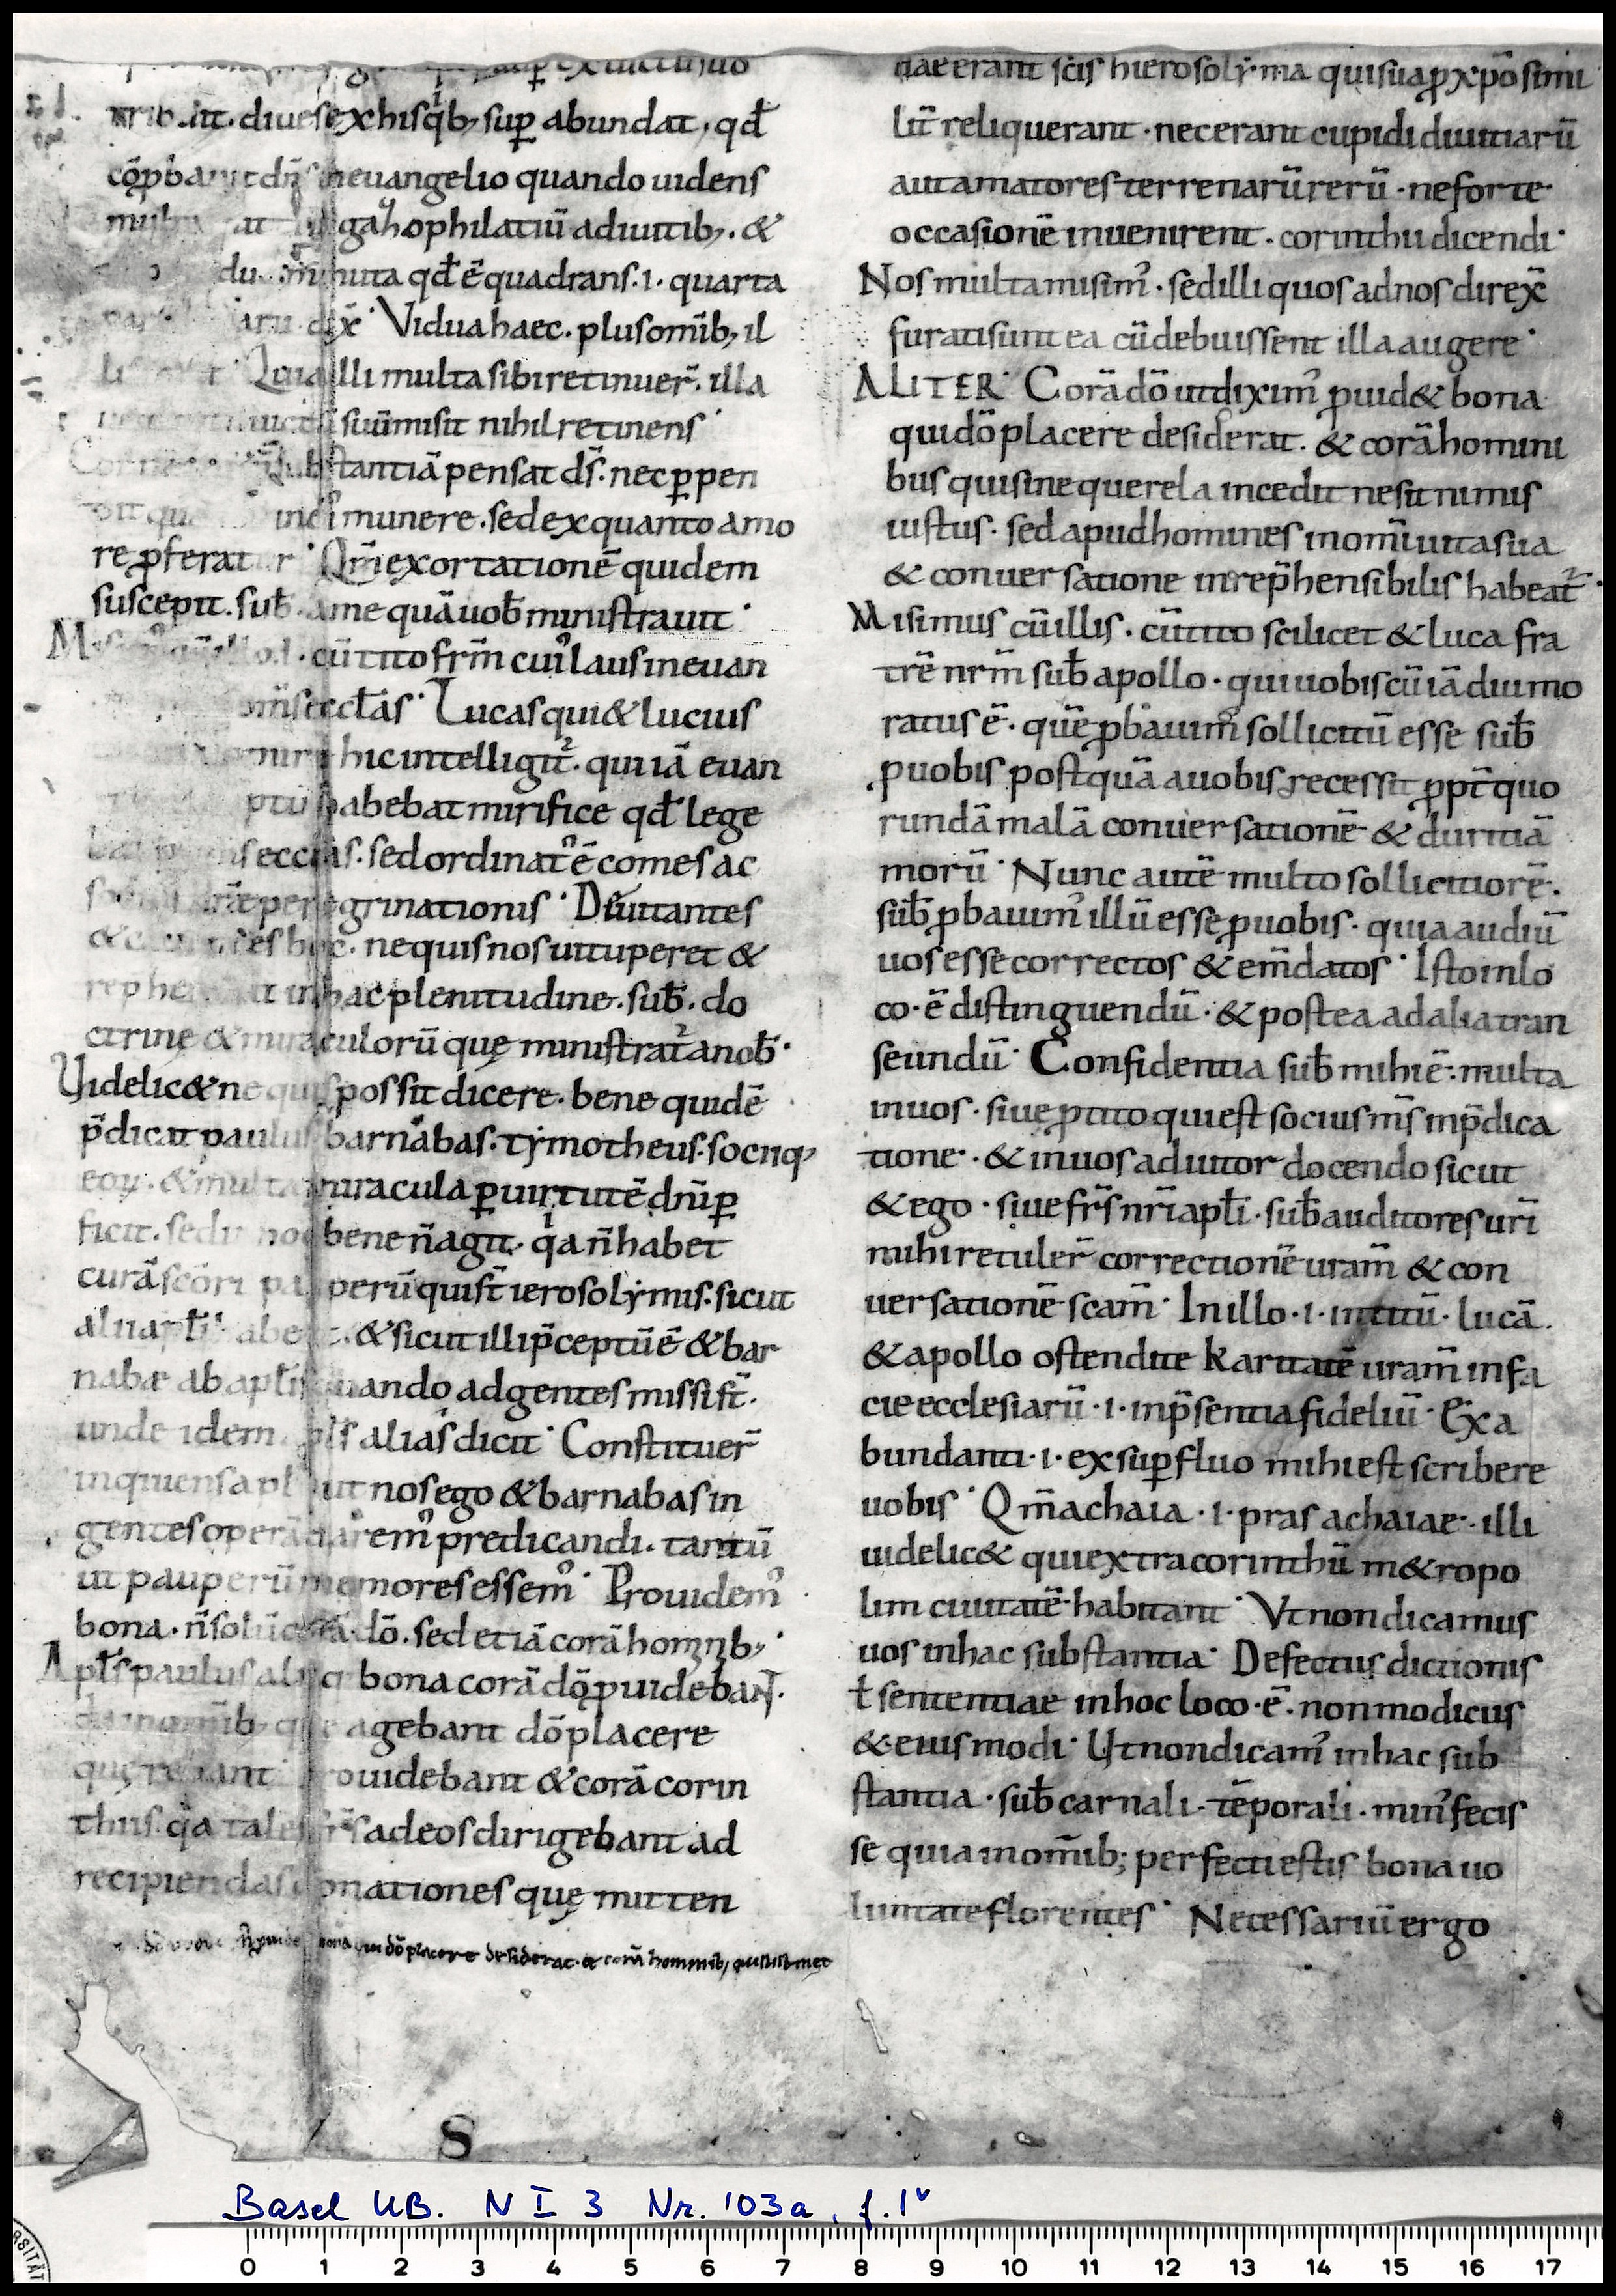 diues ex his q̄b; suꝑ abundat, qđ
euangelio quando uidens
gazophilatiū a diuitib;. &
minuta qđ ē quadrans .i. quarta
dix̄ Vidua haec. plus om̄ib; il
Quia illi multa sibi retinuer̄. illa
suū misit nihil retinens
substantiā pensat dš. nec ꝑpen
munere. sed ex quanto amo
re ꝓferat r Qm̄ exortationē quidem
suscepit. sub̄. ame quā uob̄ ministrauit
cū tito fr̄m cuiꝰ laus in euan
om̄s eccl̄as Lucas qui & lucius
hic intelligit᷑. qui iā euan
habebat mirifice qđ lege
eccl̄as. sed ordinatꝰ ē comes ac
peregrinationis Deuitantes
hoc. ne quis nos uituperet &
in hac plenitudine. sub̄. do
ctrinę & miraculorū quę ministrat᷑ a nob̄.
Uidelic& ne quis possit dicere. bene quidē
p̄dicat paulus barnabas. tymotheus. sociiq;
eoꝝ. & multa miracula ꝑ uirtutē dn̄i ꝑ
ficit. sed bene n̄ agit. q̄a n̄ habet
curā sc̄ōrū pauperū qui st̄ ierosolymis. sicut
alii apl̄i habent. & sicut illi p̄ceptū ē & bar
nabæ ab apl̄is quando ad gentes missi st̄.
unde idem apl̄s alias dicit Constituer̄
inquiens apl̄i ut nos ego & barnabas in
gentes operā daremꝰ predicandi. tantū
ut pauperū memores essemꝰ Prouidemꝰ
bona. n̄ solū corā dō. sed etiā corā hominib;
Apl̄s paulus aliiq; bona corā dō ꝓuidebaN̄.
agebant dō placere
quęrebant prouidebant & corā corin
thiis. q̄a tales fr̄s ad eos dirigebant ad
recipiendas donationes quę mitten
bona qui dō placere desiderat. & corā hominib; qui sist met
dae erant sc̄is hierosolyma qui sua ꝓ xp̄o simi
lit̄ reliquerant. nec erant cupidi diuitiarū
aut amatores terrenarū rerū. ne forte
occasionē inuenirent. corinthii dicendi
Nos multa misimꝰ. sed illi quos ad nos direx̄
furati sunt ea cū debuissent illa augere
ALITER Corā dō ut diximꝰ ꝓuid& bona
qui dō placere desiderat. & corā homini
bus qui sine querela incedit ne sit nimis
iustus. sed apud homines in om̄i uita sua
& conuersatione inrep̄hensibilis habeat᷑.
Misimus cū illis. cū tito scilicet & luca fra
trē nr̄m sub̄ apollo. qui uobiscū iā diu mo
ratus ē. quē ꝓbauimꝰ sollicitū esse sub̄
ꝓ uobis postquā a uobis recessit ꝓpt̄ quo
rundā malā conuersationē & duritiā
morū Nunc autē multo sollicitiorē.
sub̄ ꝓbauimꝰ illū esse ꝓ uobis. quia audiu
uos esse correctos & em̄datos Isto in lo
co. ē distinguendū. & postea ad alia tran
seundū Confidentia sub̄ mihi ē. multa
in uos. siue ꝓ tito qui est socius m̄s in p̄dica
tione. & in uos adiutor docendo sicut
& ego. siue fr̄s nr̄i apl̄i. sub̄ auditores ur̄i
mihi retuler̄ correctionē uram̄ & con
uersationē scam̄ In illo .i. in titū. lucā.
& apollo ostendite karitatē uram̄ in fa
cie ecclesiarū .i. in p̄sentia fideliū Ex a
bundanti .i. ex suꝑfluo mihi est scribere
uobis Qm̄ achaia .i. pras achaiae. illi
uidelic& qui extra corinthū m&ropo
lim ciuitatē habitant Vt non dicamus
uos in hac substantia Defectus dictionis
ł sententiae in hoc loco. ē. non modicus
& eiusmodi Ut non dicamꝰ in hac sub
stantia. sub̄ carnali. tēporali. minꝰ fecis
se quia in om̄ib; perfecti estis bona uo
luntate florentes Necessariū ergo
S
Basel UB. N I 3 Nr. 103a, f. 1v
0 1 2 3 4 5 6 7 8 9 10 11 12 13 14 15 16 17